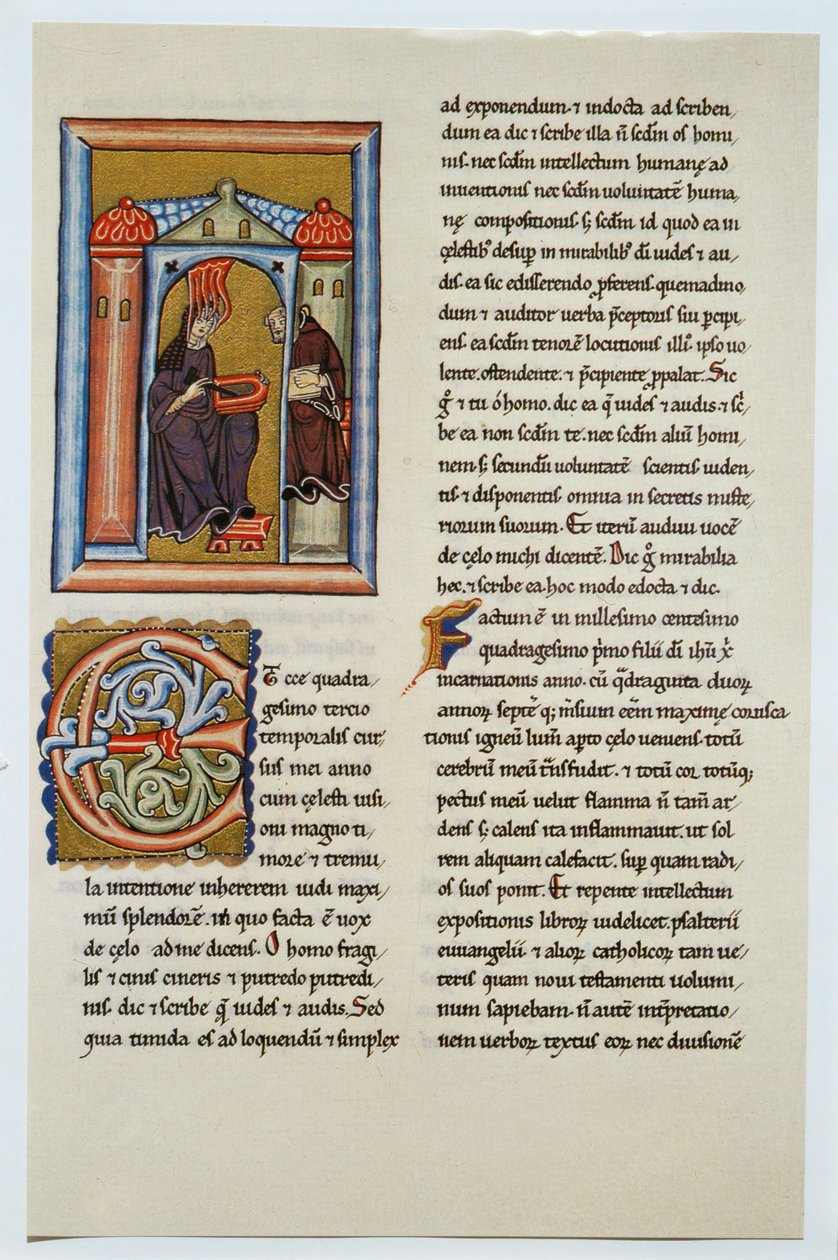 Et ecce quadra/
gesimo tercio
temporalis cur/
sus mei anno
cum cęlesti uisi/
oni magno ti/
more ⁊ tremu/
la intentione inhererem uidi maxi/
mū splendorē. in quo facta ē uox
de cęlo ad me dicens. O homo fragi/
lis ⁊ cinis cineris ⁊ putredo putredi/
nis. dic ⁊ scribe q̄ uides ⁊ audis. Sed
quia timida es ad loquendū ⁊ simplex
ad exponendum. ⁊ indocta ad scriben/
dum ea dic ⁊ scribe illa n̄ scd̄m os homi/
nis. nec scd̄m intellectum humanę ad
inuentionis nec scd̄m uoluntatē huma/
nę compositionis. s; scd̄m id quod ea in
cęlestib; desup̄ in mirabilib; dī uides ⁊ au/
dis. ea sic edisserendo p̄ferens. quemadmo/
dum ⁊ auditor uerba p̄ceptoris sui p̱cipi/
ens. ea scd̄m tenorē locutionis illi᷒. ipso uo/
lente. ostendente. ⁊ p̄cipiente p̱palat. Sic
gͦ ⁊ tu ó homo. dic ea q̄ uides ⁊ audis. ⁊ sc̄/
be ea non scd̄m te. nec scd̄m aliū homi/
nem. s; secundū uoluntatē scientis uiden/
tis. ⁊ disponentis omnia in secretis miste/
riorum suorum. Et iterū audiui uocē
de cęlo michi dicentē. Dic gͦ mirabilia
hec. ⁊ scribe ea. hoc modo edocta ⁊ dic.
Factum ē in millesimo centesimo
quadragesimo p̄mo filii dī ih̄u x̄
incarnationis anno. cū q̄draginta duoꝝ
annoꝝ septē q; m̄sium eēm maximę corusca
tionis igneū lum̄ ap̱to cęlo ueniens. totū
cerebrū meū t̄nsfudit. ⁊ totū cor totūq;
pectus meū uelut flamma n̄ tam̄ ar/
dens s; calens ita inflammauit. ut sol
rem aliquam calefacit. sup̄ quam radi/
os suos ponit. Et repente intellectum
expositionis libroꝝ uidelicet. psalterii
euuangelii. ⁊ alioꝝ catholicoꝝ tam ue/
teris quam noui testamenti uolumi/
num sapiebam. n̄ autē int̄pretatio/
nem uerboꝝ textus eoꝝ nec diuisionē